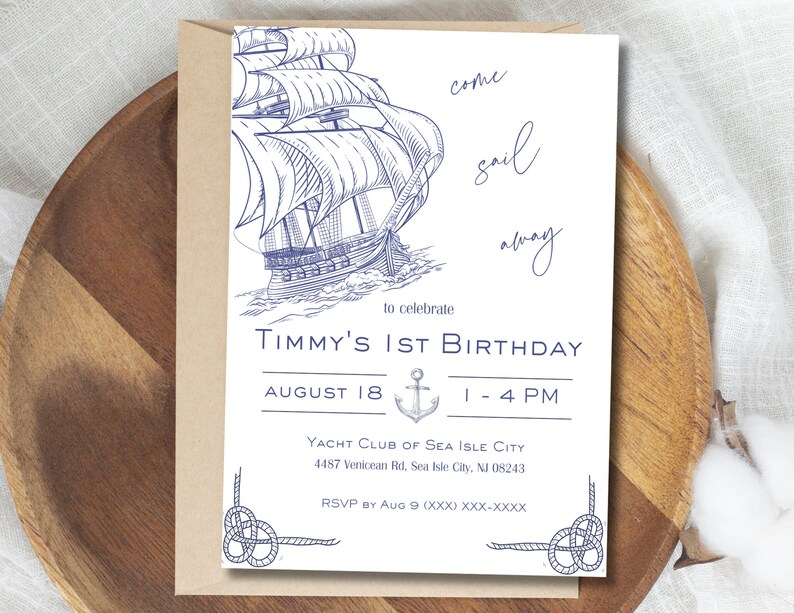 come
sail
away
to celebrate
Timmy's 1st Birthday
August 18
1 - 4 PM
Yacht Club of Sea Isle City
4487 Venicean Rd, Sea Isle City, NJ 08243
RSVP by Aug 9 (XXX) XXX-XXXX